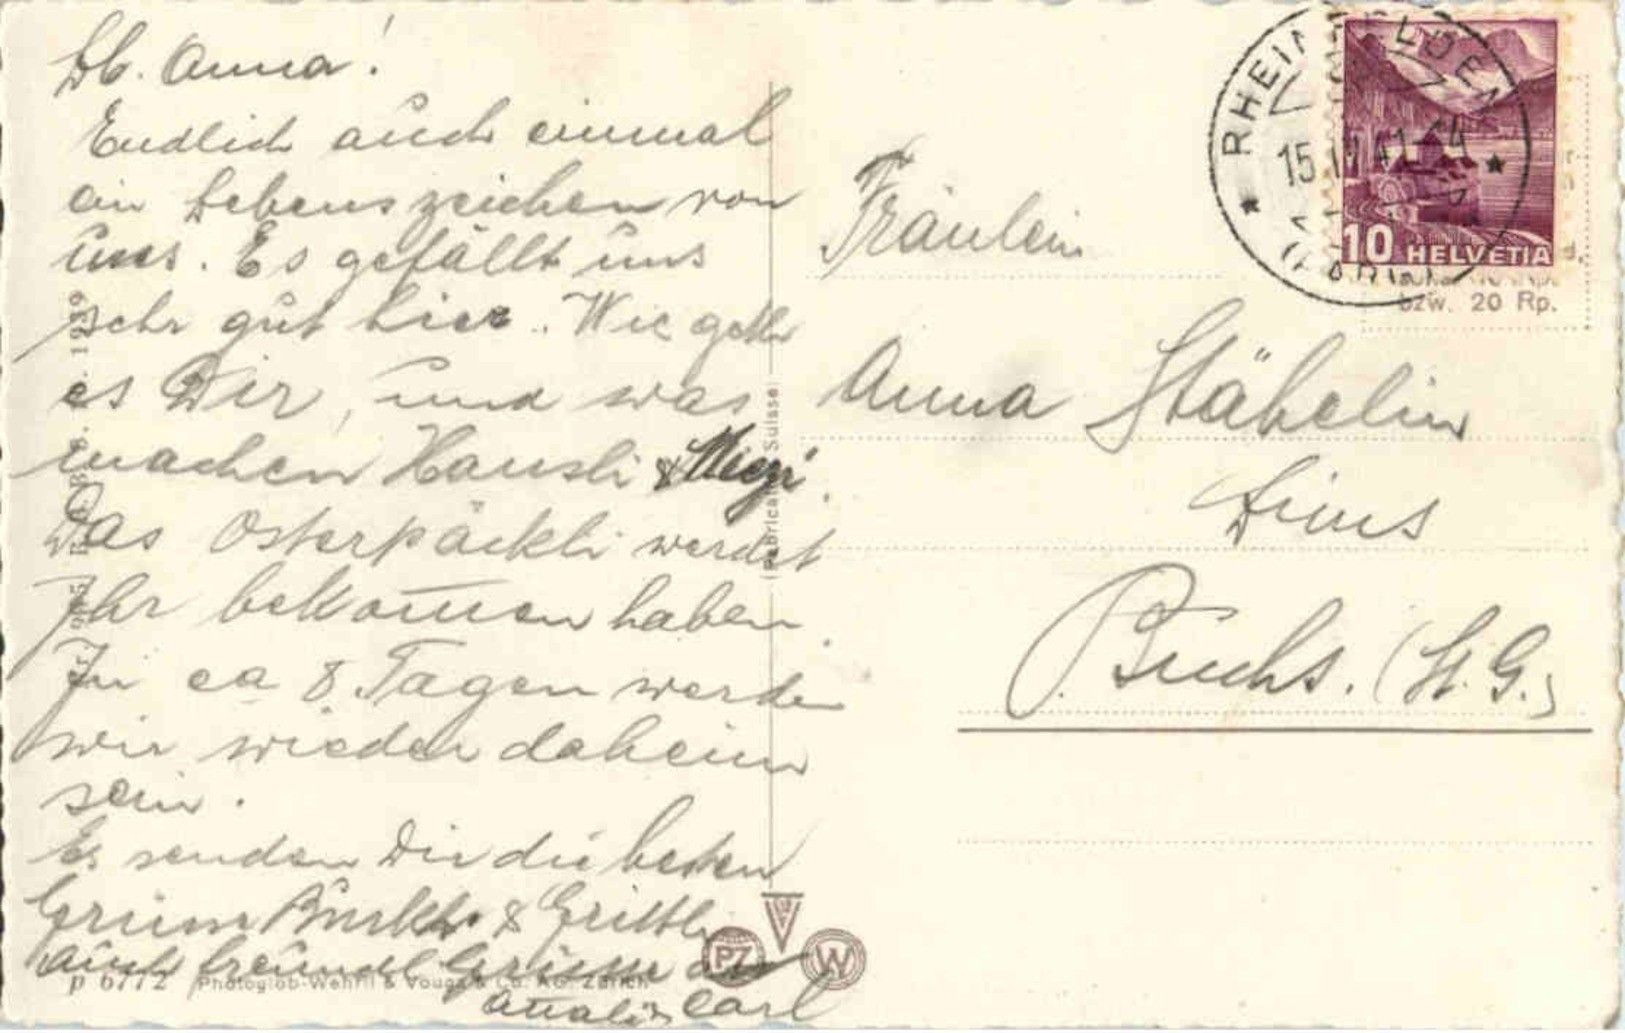 Lb. Anna!
Endlich auch einmal
ein Lebenszeichen von
uns. Es gefällt uns
sehr gut hier. Wie geht
es Dir, und was
machen Hansli & Miezi.
Das Osterpäckli werdet
Ihr bekommen haben.
In ca 8 Tagen werden
wir wieder daheim
sein.
Es senden Dir die besten
Grüsse & Grittli
auch freundl. Grüsse
Carl
Fräulein
Anna Stähelin
Buchs. (St. G.)
RHEINFELDEN
15. IV. 41
10 HELVETIA
bzw. 20 Rp.
1939
Suisse
PZ
W
P 6772 Photoglob-Wehrli & Vouga & Co. AG. Zürich